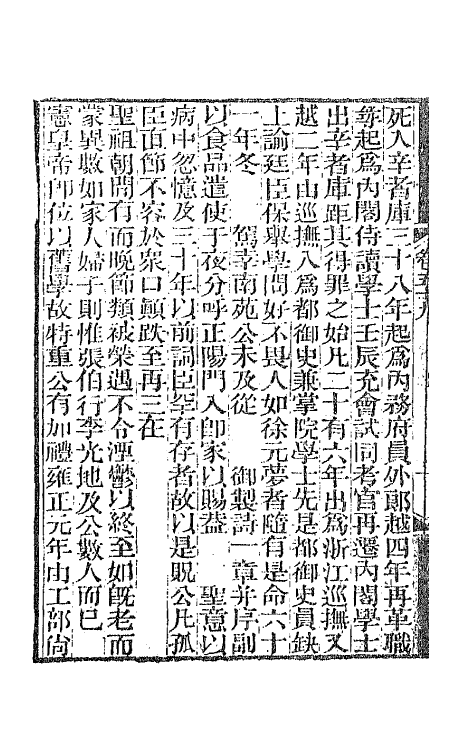 死入辛者庫三十八年起為內務府員外郎越四年再革職
尋起為內閣侍讀學士壬辰充會試同考官再遷內閣學士
出辛者庫距其得罪之始凡二十有六年出為浙江巡撫又
越二年由巡撫入為都御史兼掌院學士先是都御史員缺
上諭廷臣保舉學問好不畏人如徐元夢者隨有是命六十
一年冬　　駕幸南苑公未及從　　御製詩一章并序副
以食品遣使于夜分呼正陽門入即家以賜蓋　　聖意以
病中忽憶及三十年以前詞臣罕有存者故以是貺公凡孤
臣直節不容於衆口顛跌至再三在
聖祖朝間有而晚節類被榮遇不令湮鬱以終至如既老而
蒙異數如家人婦子則惟張伯行李光地及公數人而已
憲皇帝即位以舊學故特重公有加禮雍正元年由工部尚
卷五九